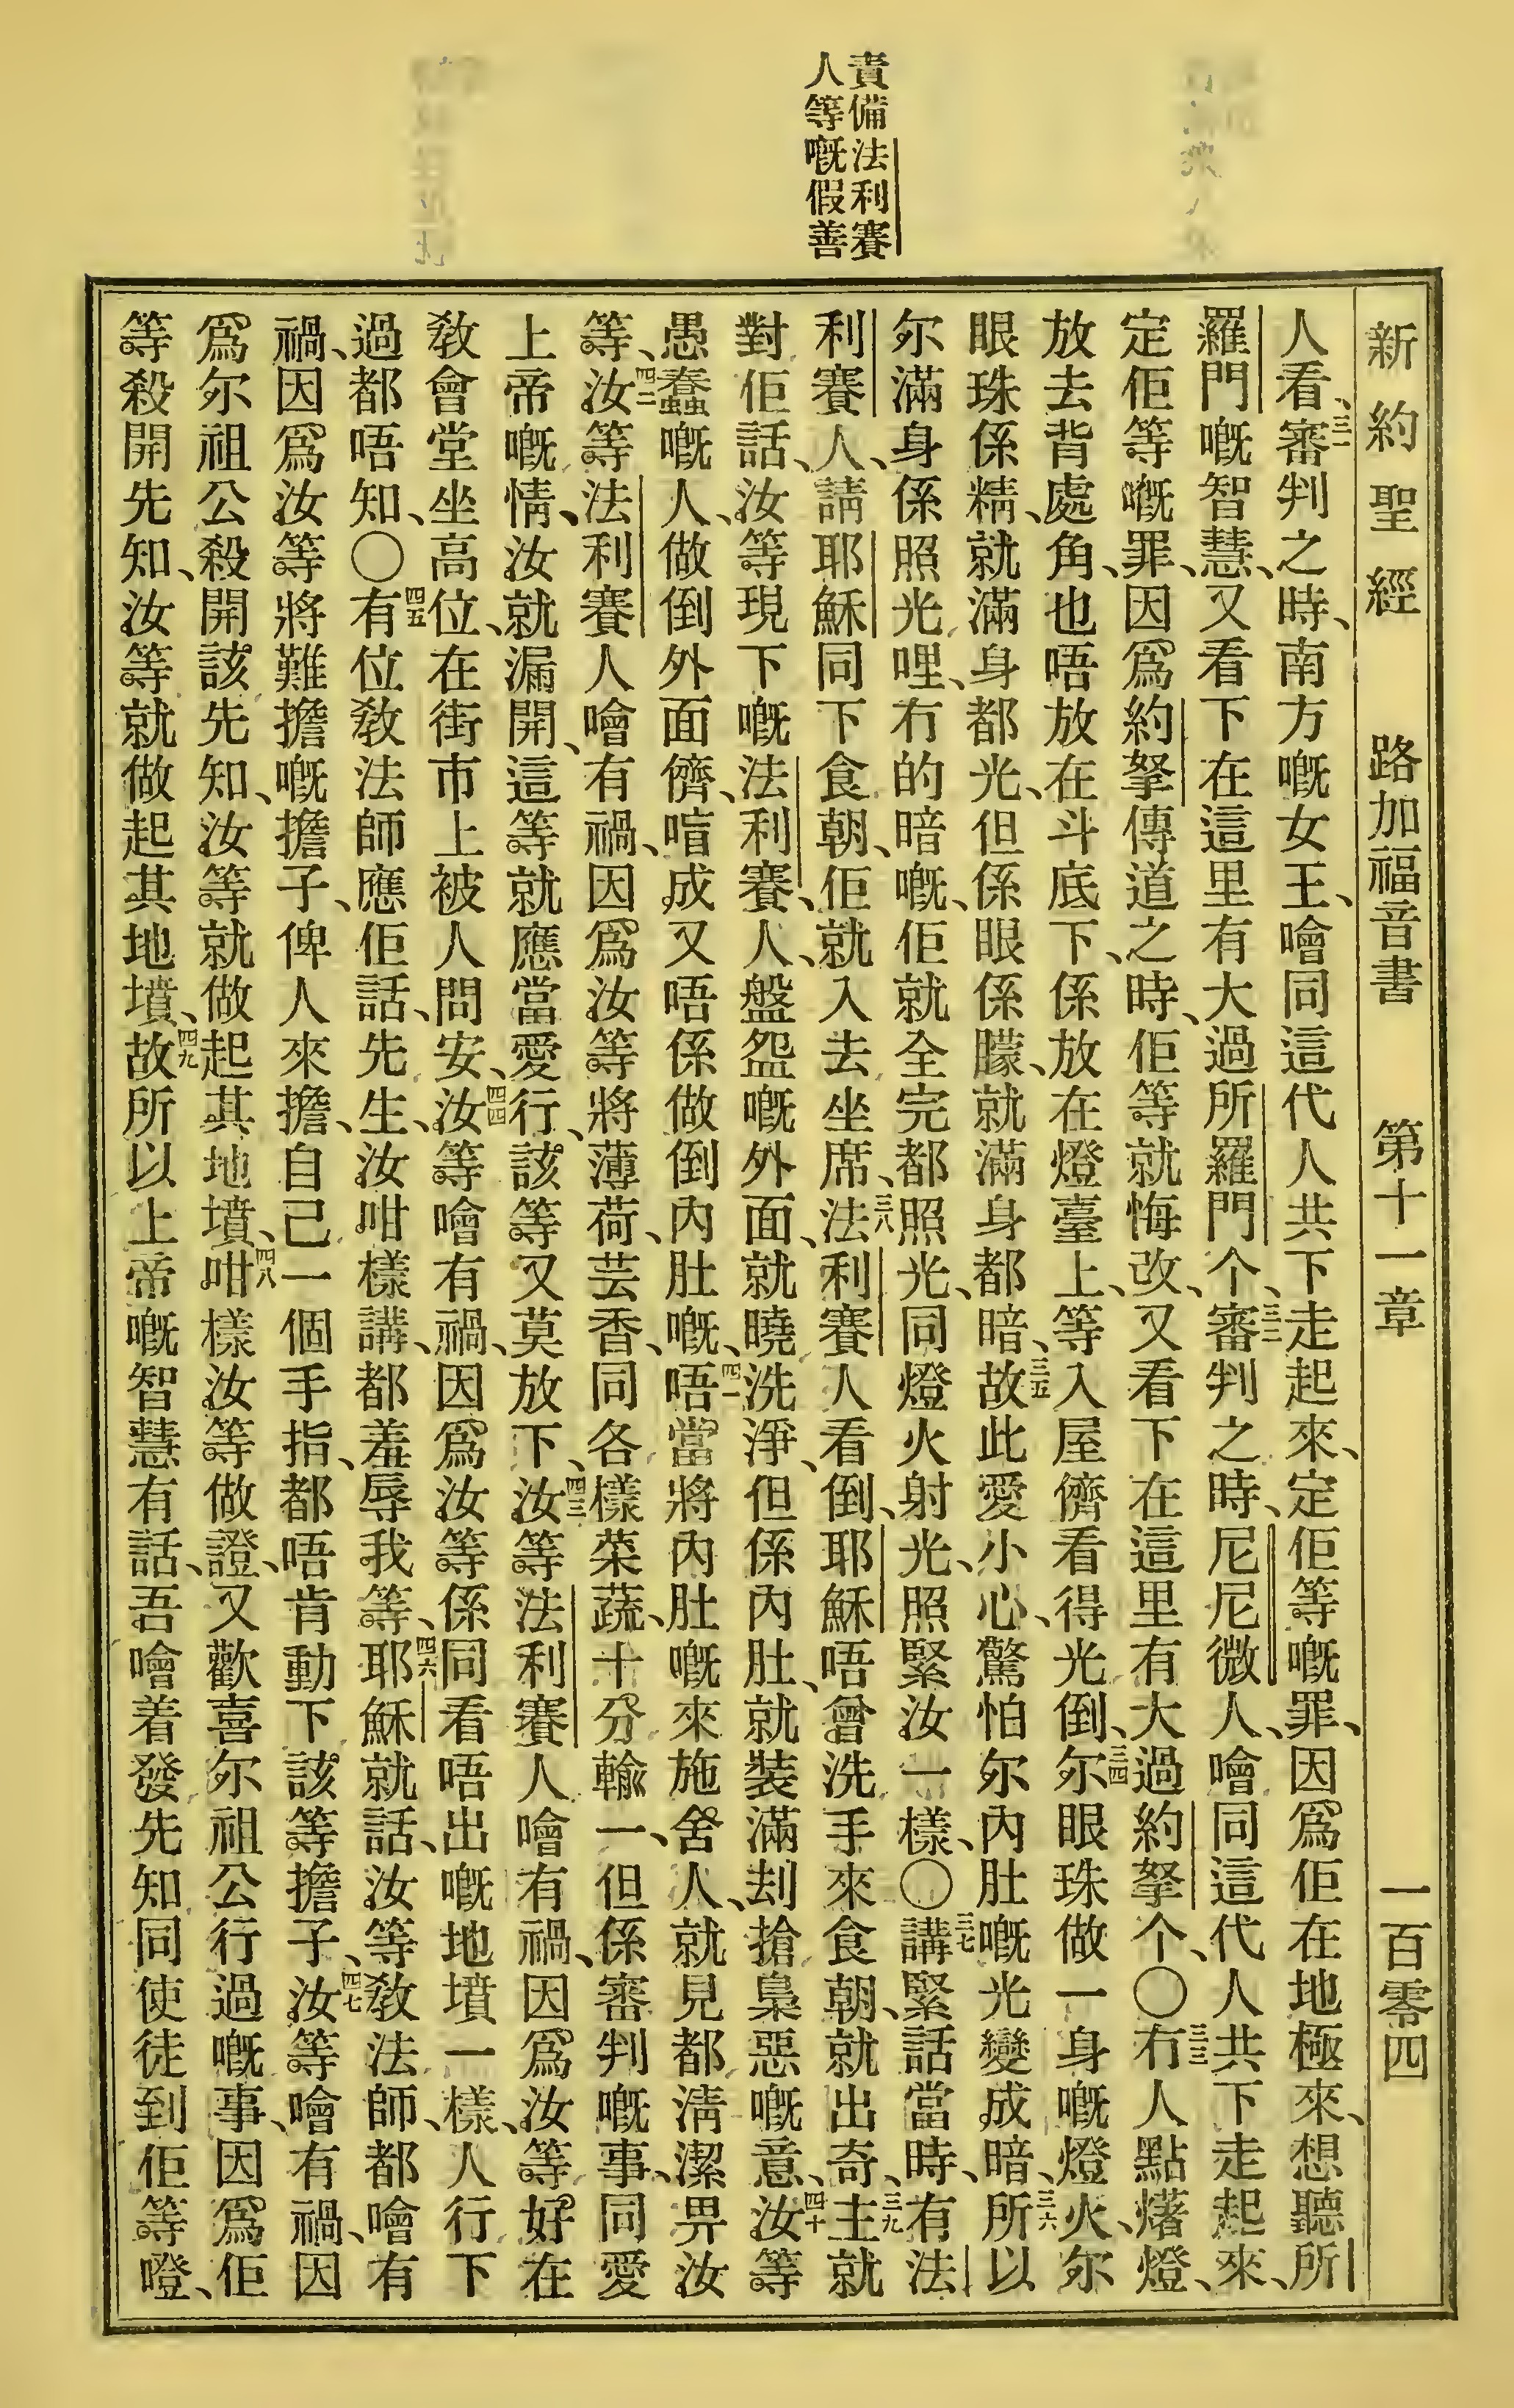 責備法利賽
人等嘅假善
新約聖經 路加福音書 第十一章 一百零四
人看、三一審判之時、南方嘅女王、噲同這代人共下走起來、定佢等嘅罪、因爲佢在地極來、想聽所
羅門嘅智慧、又看下在這里有大過所羅門个、三二審判之時、尼尼微人、噲同這代人共下走起來、
定佢等嘅罪、因爲約拏傳道之時、佢等就悔改、又看下在這里有大過約拏个、〇三三冇人點㷮燈、
放去背處角、也唔放在斗底下、係放在燈臺上、等入屋儕看得光倒、三四尔眼珠做一身嘅燈火、尔
眼珠係精、就滿身都光、但係眼係矇、就滿身都暗、三五故此愛小心、驚怕尔內肚嘅光變成暗、三六所以
尔滿身係照光哩、冇的暗嘅、佢就全完都照光、同燈火射光、照緊汝一樣、〇三七講緊話當時、有法
利賽人、請耶穌同下食朝、佢就入去坐席、三八法利賽人看倒、耶穌唔曾洗手來食朝、就出奇、三九主就
對佢話、汝等現下嘅法利賽人、盤盌嘅外面、就曉洗淨、但係內肚、就裝滿刦搶梟惡嘅意、四十汝等
愚蠢嘅人、做倒外面儕、喑成又唔係做倒內肚嘅、四一唔當將內肚嘅來施舍人、就見都淸潔畀汝
等、四二汝等法利賽人噲有禍、因爲汝等將薄荷、芸香、同各樣菜蔬、十分輸一、但係審判嘅事、同愛
上帝嘅情、汝就漏開、這等就應當愛行、該等又莫放下、四三汝等法利賽人噲有禍、因爲汝等好在
敎會堂坐高位、在街市上被人問安、四四汝等噲有禍、因爲汝等係同看唔出嘅地墳一樣、人行下
過都唔知、〇四五有位敎法師應佢話、先生、汝咁樣講、都羞辱我等、四六耶穌就話、汝等敎法師、都噲有
禍、因爲汝等將難擔嘅擔子、俾人來擔、自己一個手指、都唔肯動下該等擔子、四七汝等噲有禍、因
爲尔祖公殺開該先知、汝等就做起其地墳、四八咁樣汝等做證、又歡喜尔祖公行過嘅事、因爲佢
等殺開先知、汝等就做起其地墳、四九故所以上帝嘅智慧有話、吾噲着發先知同使徒到佢等噔、